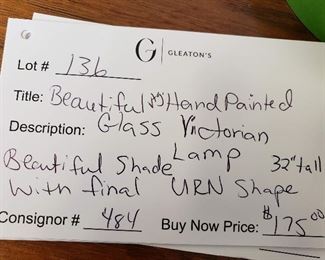 G | GLEATON'S
Lot # 136
Title: Beautiful Hand Painted
Description: Glass Victorian
Lamp
Beautiful Shade 32" tall
with final URN Shape
Consignor # 484 Buy Now Price: $175.00